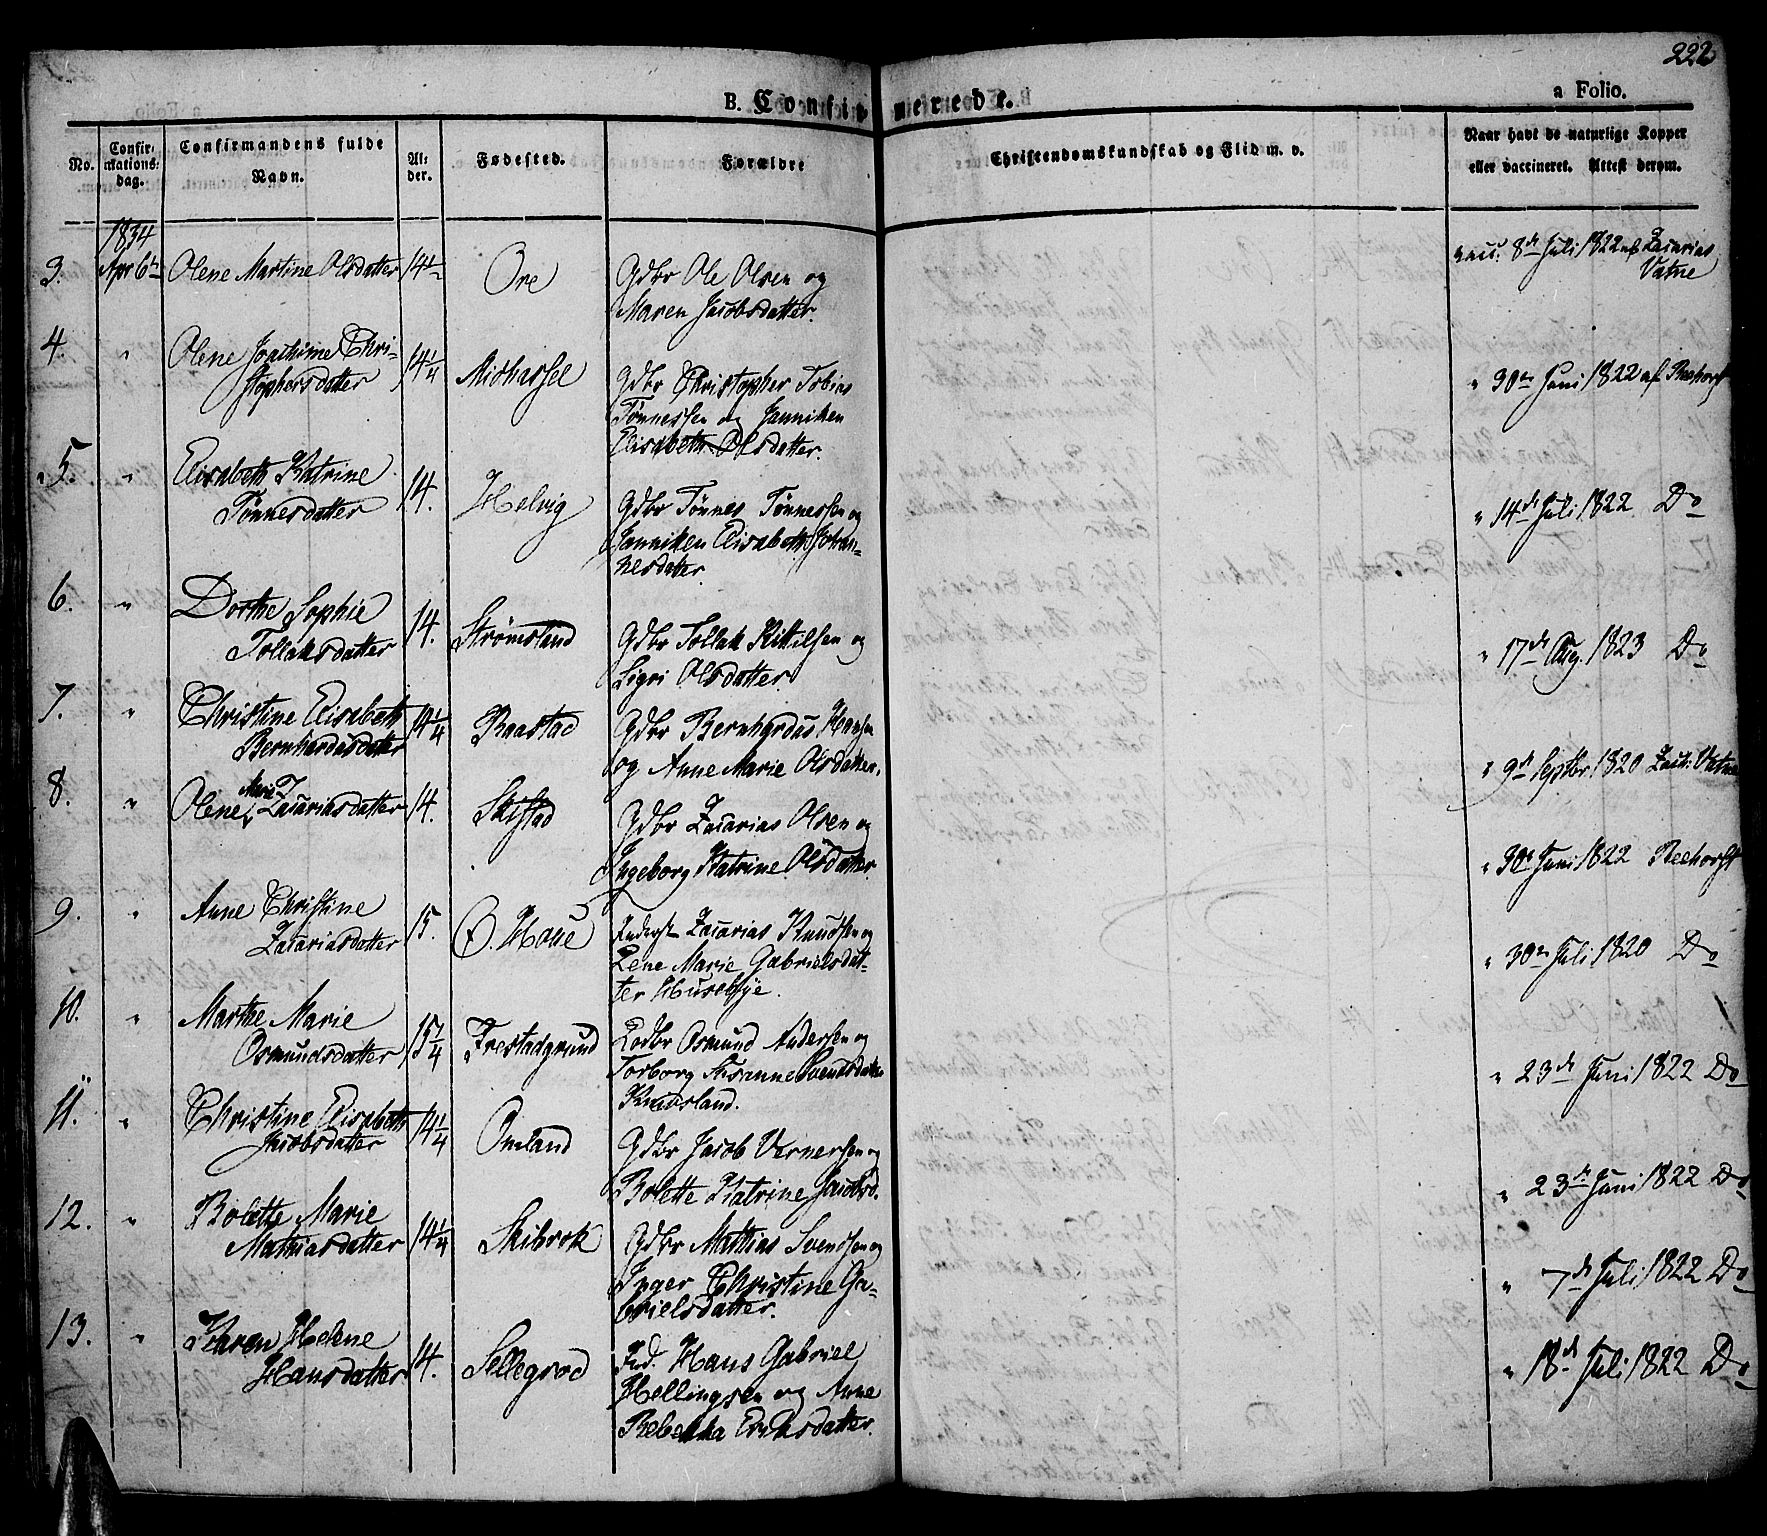 222
B. Confirmerede.
a Folio.
No.
Confir-
mations-
dag.
Confirmandens fulde
Navn.
Al-
der.
Fødested.
Forældre
Christendomskundskab og Flid m. v.
Naar havt de naturlige Kopper
eller vaccineret. Attest derom.
1834
3. Apr 6te Olene Martine Olsdatter 14½ Ore Gdbr Ole Olsen og
Maren Jacobsdatter.
vacc. 8de Juli 1822 af Zacarias
Vatne
4. " Olene Joachime Chri-
stophersdatter 14¼ Midhassel Gdbr Christopher Tobias
Tønnessen og Janniken
Elisabeth Olsdatter.
" 30te Juni 1822 af Reehorst
5. " Elisabeth Katrine
Tønnesdatter 14. Helvig Gdbr Tønnes Tønnessen og
Janniken Elisabeth Johan-
nesdatter
" 14de Juli 1822 Do
6. " Dorthe Sophie
Tollaksdatter 14. Strømsland Gdbr Tollak Kittilsen og
Sigri Olsdatter
" 17de Aug. 1823 Do
7. " Christine Elisabeth
Bernhardusdatter 14¼ Raastad Gdbr Bernhardus Hansen
og Anne Marie Olsdatter.
" 9de Septbr. 1820 Zach. Vatne
8. " Olene Marie Zacariasdatter 14. Skistad Gdbr Zacarias Olsen og
Ingeborg Katrine Olsdatter.
" 30te Juni 1822 Reehorst
9. " Anne Christine
Zacariasdatter 15. Ø. Houe Inderst Zacarias Knudsen og
Lene Marie Gabrielsdat-
ter Husebye.
" 30te Juli 1820 Do
10. " Marthe Marie
Osmundsdatter 15¼ Frestadgrund Lodbr Osmund Andersen og
Torborg Susanne Svendsdatter
Knudsland.
" 23de Juni 1822 Do
11. " Christine Elisabeth
Jacobsdatter 14¼ Omland Gdbr Jacob Vernersen og
Bolette Katrine Jacobsd.
" 23de Juni 1822 Do
12. " Bolette Marie
Mathiasdatter 14¼ Skibrok Gdbr Mathias Svendsen og
Inger Christine Ga-
brielsdatter.
" 7de Juli 1822 Do
13. " Karen Helene
Hansdatter 14. Sellegrod Ind. Hans Gabriel
Hellingsen og Anne
Rebekka Eriksdatter.
" 18de Juli 1822 Do